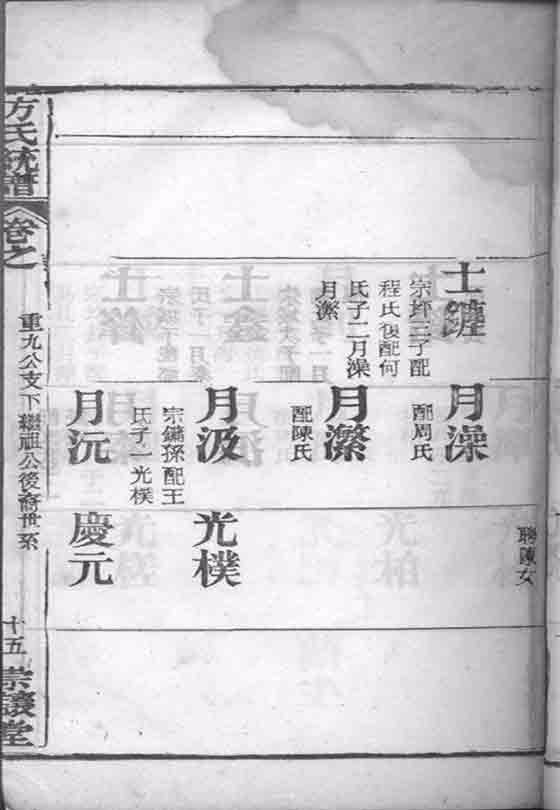 士瀍
宗垶三子配
程氏復配何
氏子二月澡
月瀠
月澡
配周氏
月瀠
配陳氏
月汲
宗鏽孫配王
氏子一光樸
月沅
聘陳女
光樸
慶元
方氏統譜
卷之
重九公支下繼祖公後裔世系
十五
崇讓堂